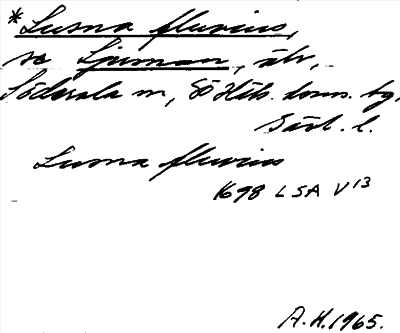 *Lusna fluvius,
se Ljusnan, älv,
Söderala sn, Sö Häls. doms. bg,
Gävl. l.
Lusna fluvius
1698 LSA V 13
A.H. 1965.